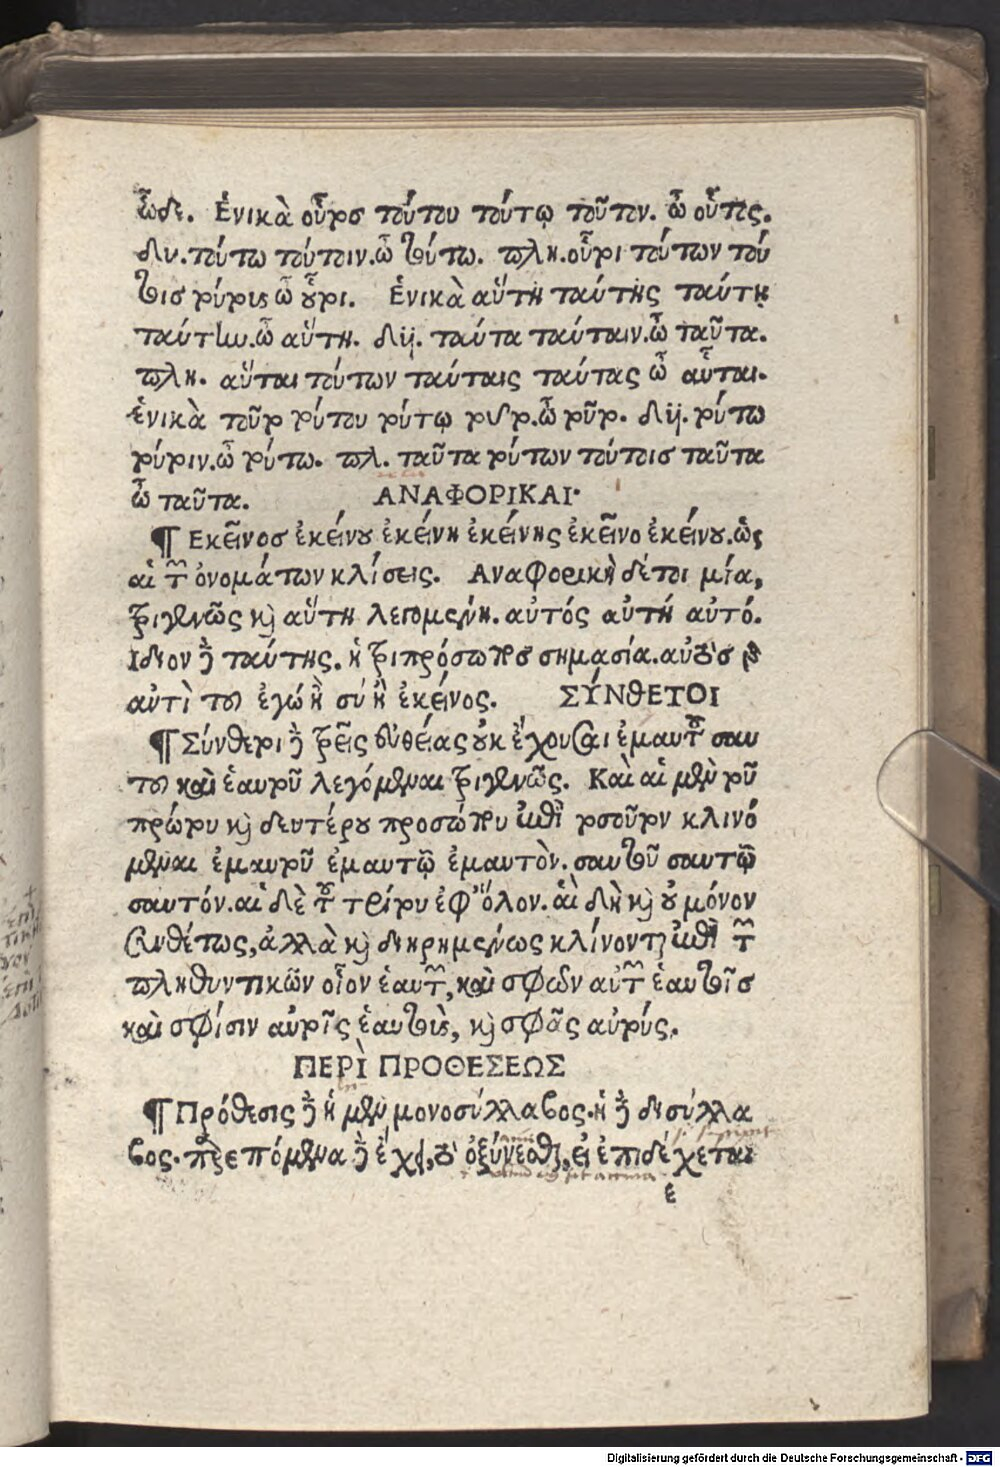 ὧδε. Ἑνικὰ οὗτος τούτου τούτῳ τοῦτον. ὦ οὗτος.
δυ. τούτω τούτοιν. ὦ τούτω. πλη. οὗτοι τούτων τού
τοις τούτους ὦ οὗτοι. Ἑνικὰ αὕτη ταύτης ταύτῃ
ταύτην. ὦ αὕτη. δυϊ. ταύτα ταύταιν. ὦ ταῦτα.
πλη. αὕται τούτων ταύταις ταύτας ὦ αὗται.
ἑνικὰ τοῦτο τούτου τούτῳ τοῦτο. ὦ τοῦτο. δυϊ. τούτω
τούτοιν. ὦ τούτω. πλ. ταῦτα τούτων τούτοις ταῦτα
ὦ ταῦτα. ΑΝΑΦΟΡΙΚΑΙ·
¶ Εκεῖνος ἐκείνου ἐκείνη ἐκείνης ἐκεῖνο ἐκείνου. ὡς
αἱ τῶν ὀνομάτων κλίσεις. Αναφορικὴ δέ τοι μία,
τριγενῶς καὶ αὕτη λεγομένη. αὐτός αὐτή αὐτό.
Ιδιον δὲ ταύτης. ἡ τριπρόσωπος σημασία. αὐτὸς
αὐτὶ τοῦ ἐγώ ἢ σύ ἢ ἐκείνος. ΣΥΝΘΕΤΟΙ
¶ Σύνθετοι δὲ τρεῖς εὐθείας οὐκ ἔχουσαι ἐμαυτοῦ σαυ
τοῦ καὶ ἑαυτοῦ λεγόμεναι τριγενῶς. Καὶ αἱ μὲν τοῦ
πρώτου καὶ δευτέρου προσώπου κατὰ τοσοῦτον κλινό
μεναι ἐμαυτοῦ ἐμαυτῷ ἐμαυτὸν. σαυτοῦ σαυτῷ
σαυτόν. αἱ δὲ τοῦ τρίτου ἐφ' ὅλον. αἱ δὴ καὶ οὐ μόνον
συνθέτως, ἀλλὰ καὶ διῃρημένως κλίνονται κατὰ τῶν
πληθυντικῶν οἷον ἑαυτῶν, καὶ σφῶν αὐτῶν ἑαυτοῖς
καὶ σφίσιν αὐτοῖς ἑαυτοὺς, καὶ σφᾶς αὐτούς.
ΠΕΡῚ ΠΡΟΘΕΣΕΩΣ
¶ Πρόθεσις δὲ ἡ μὲν μονοσύλλαβος. ἡ δὲ δισύλλα
βος. παρεπόμενα δὲ ἔχει, τὸ ὀξύνεσθαι, εἰ ἐπιδέχεται
ε
Digitalisierung gefördert durch die Deutsche Forschungsgemeinschaft - DFG